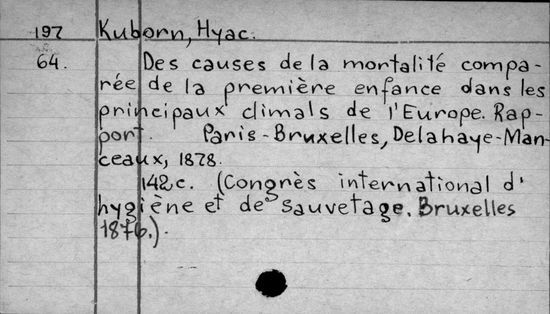 197 Kuborn, Hyac.
64. Des causes de la mortalité compa-
rée de la première enfance dans les
principaux climals de l'Europe. Rap-
port. Paris-Bruxelles, Delahaye-Man-
ceaux, 1878.
142c. (Congrès international d'
hygiène et de sauvetage. Bruxelles
1876.).